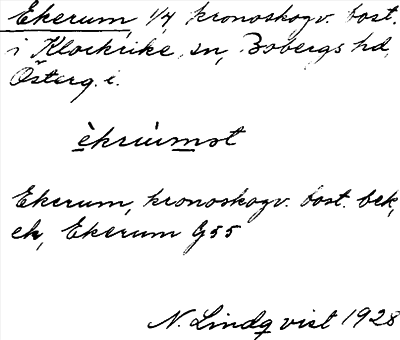 Ekerum, 1/4 kronoskogv. bost.
i Klockrike sn, Bobergs hd,
Österg. i.
èkriùmst
Ekerum, kronoskogv. bost. bek,
ek, Ekerum G55
N. Lindqvist 1928